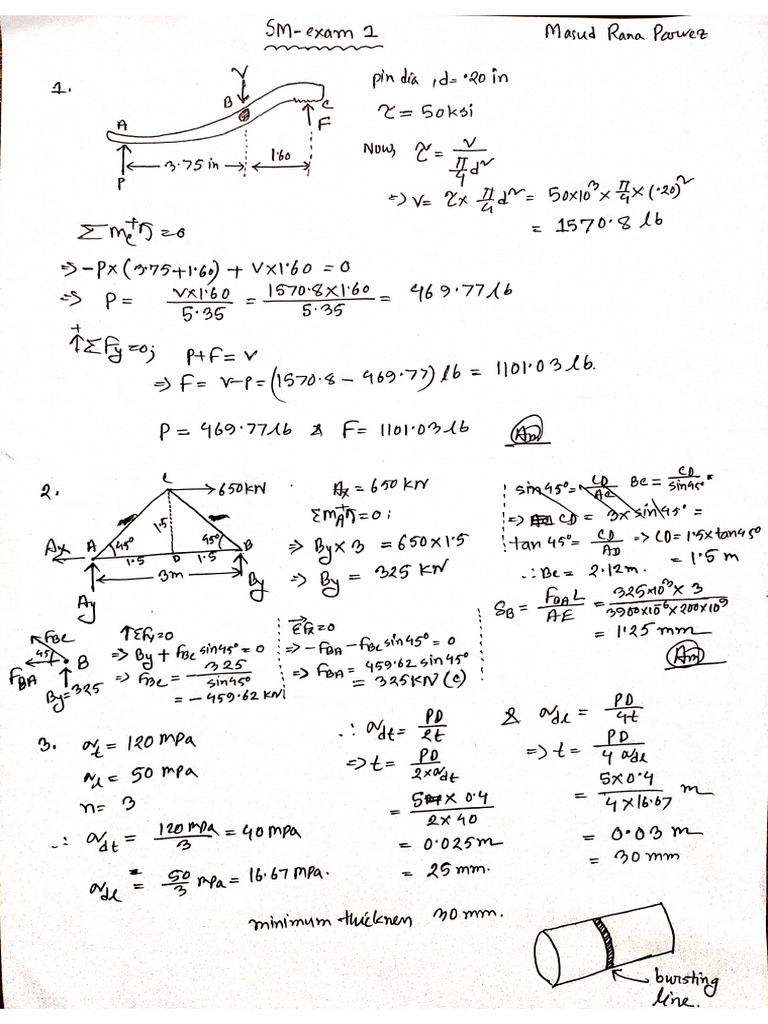 SM-exam 1
Masud Rana Parvez
1.
V
B
C
A
F
3.75 in
1.60
P
pin dia, d = .20 in
τ = 50 ksi
Now τ = V / (π/4 d²)
⇒ V = τ × π/4 d² = 50×10³ × π/4 × (.20)²
= 1570.8 lb
ΣMc = 0
⇒ -P×(3.75+1.60) + V×1.60 = 0
⇒ P = V×1.60 / 5.35 = 1570.8×1.60 / 5.35 = 469.77 lb
+↑ΣFy=0; P+F = V
⇒ F = V-P = (1570.8 - 469.77) lb = 1101.03 lb.
P = 469.77 lb & F = 1101.03 lb
2.
C
650 KN
1.5
45° 45°
Ax A 1.5 D 1.5 B
3m
Ay By
Ax = 650 KN
ΣMA = 0;
⇒ By × 3 = 650×1.5
⇒ By = 325 KN
sin45° = CD/AC BC = CD/sin45° =
⇒ CD = 3×sin45° =
tan45° = CD/AD ⇒ CD = 1.5×tan45°
= 1.5 m
∴ BC = 2.12m.
SB = FBA L / AE = 325×10³×3 / 3900×10⁻⁶×200×10⁹
= 1.25 mm
FBC
45°
FBA B
By = 325
↑ΣFy=0
⇒ By + FBC sin45° = 0
⇒ FBC = - 325 / sin45°
= -459.62 KN
ΣFx = 0
⇒ -FBA - FBC sin45° = 0
⇒ FBA = 459.62 sin45°
= 325 KN (C)
3. σt = 120 mpa
σl = 50 mpa
n = 3
∴ σdt = 120 mpa / 3 = 40 mpa
σdl = 50/3 mpa = 16.67 mpa.
∴ σdt = PD / 2t
⇒ t = PD / 2×σdt
= 5 × 0.4 / 2×40
= 0.025 m
= 25 mm.
& σdl = PD / 4t
⇒ t = PD / 4 σdl
= 5×0.4 / 4×16.67 m
= 0.03 m
= 30 mm
minimum thicknen 30 mm.
bursting
line.